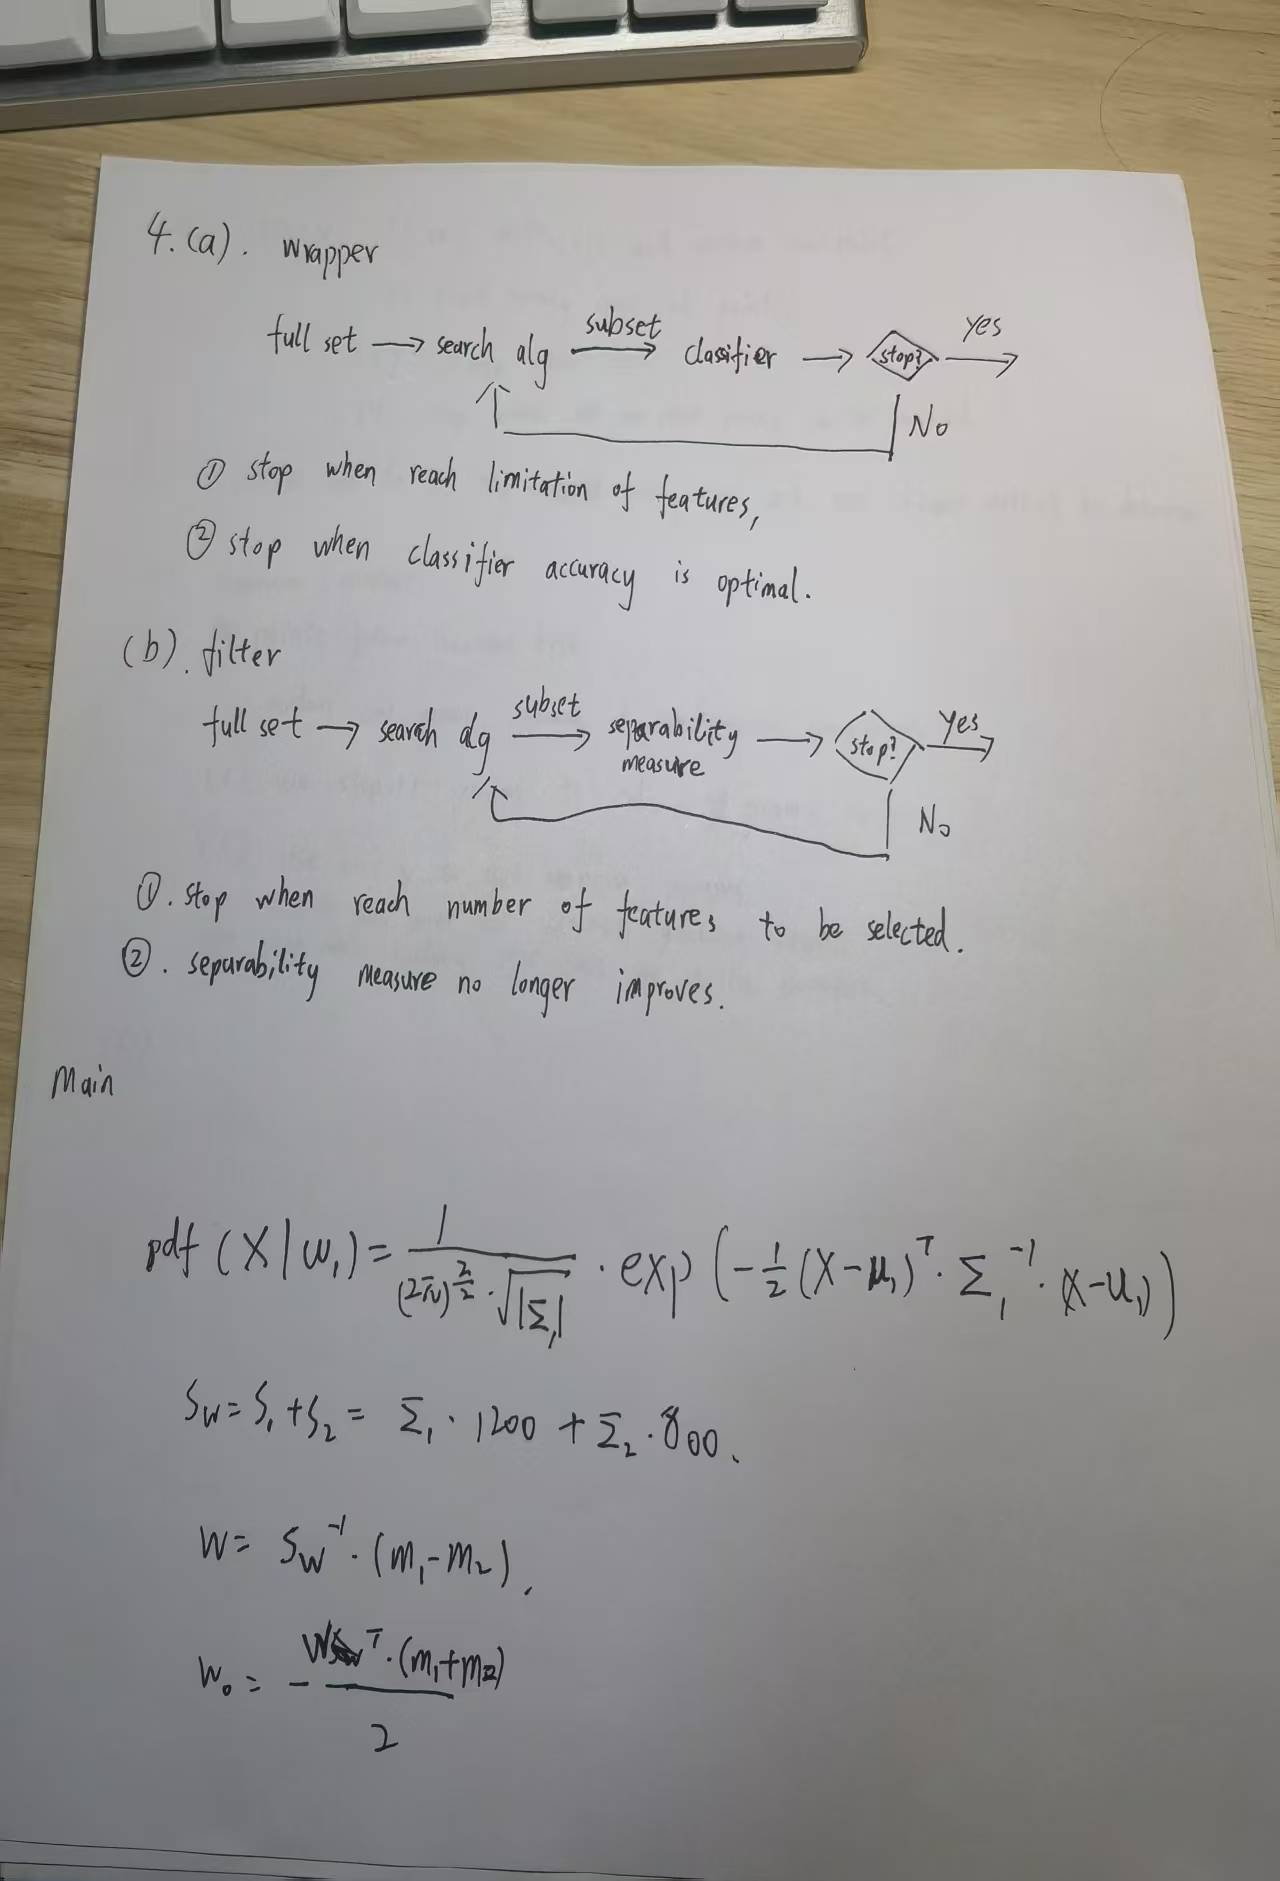 4.(a). wrapper
full set → search alg subset → classifier → stop? yes →
No
① stop when reach limitation of features,
② stop when classifier accuracy is optimal.
(b). filter
full set → search alg subset → separability measure → stop? yes →
No
①. stop when reach number of features to be selected.
②. separability measure no longer improves.
Main
pdf (X|w₁) = 1 / ((2π)^(2/2) · √|Σ₁|) · exp (-1/2 (X-μ₁)ᵀ · Σ₁⁻¹ · (X-u₁))
Sw = S₁ + S₂ = Σ₁ · 1200 + Σ₂ · 800.
W = Sw⁻¹ · (m₁-m₂).
W₀ = - Wᵀ · (m₁+m₂) / 2